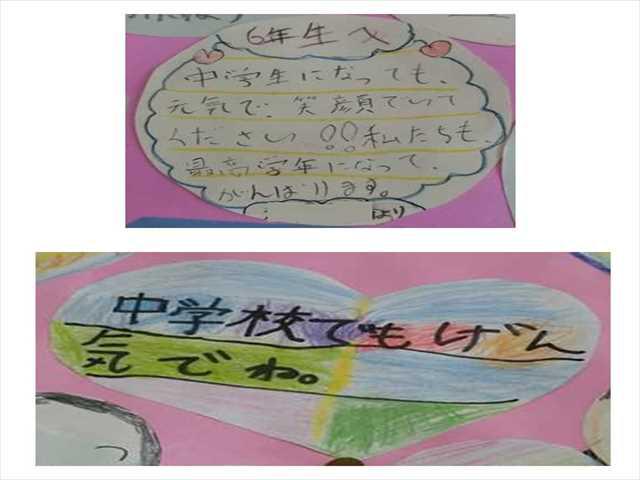 6年生へ
中学生になっても、
元気で、笑顔でいて
ください!!私たちも、
最高学年になって、
がんばります。
より
中学校でもげん
気でね。